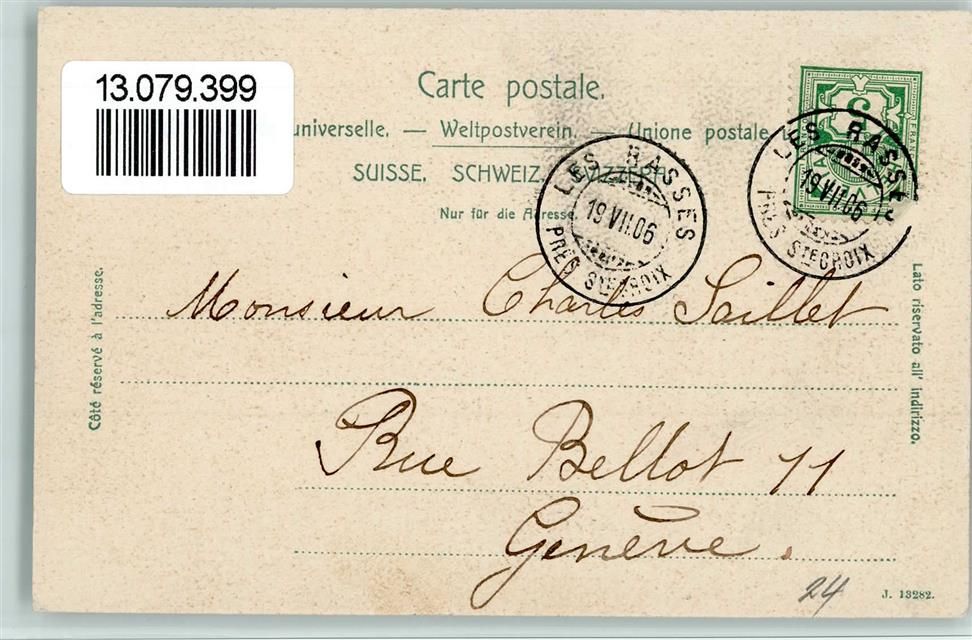 13.079.399
Carte postale.
universelle. — Weltpostverein. — Unione postale
SUISSE. SCHWEIZ. SVIZZERA.
Nur für die Adresse.
LES RASSES
19 VII.06
PRÈS STE CROIX
LES RASSES
19 VII.06
PRÈS STE CROIX
FRANCO
5
Côté réservé à l'adresse.
Lato riservato all' indirizzo.
Monsieur Charles Saillet
Rue Bellot 11
Genève.
24
J. 13282.